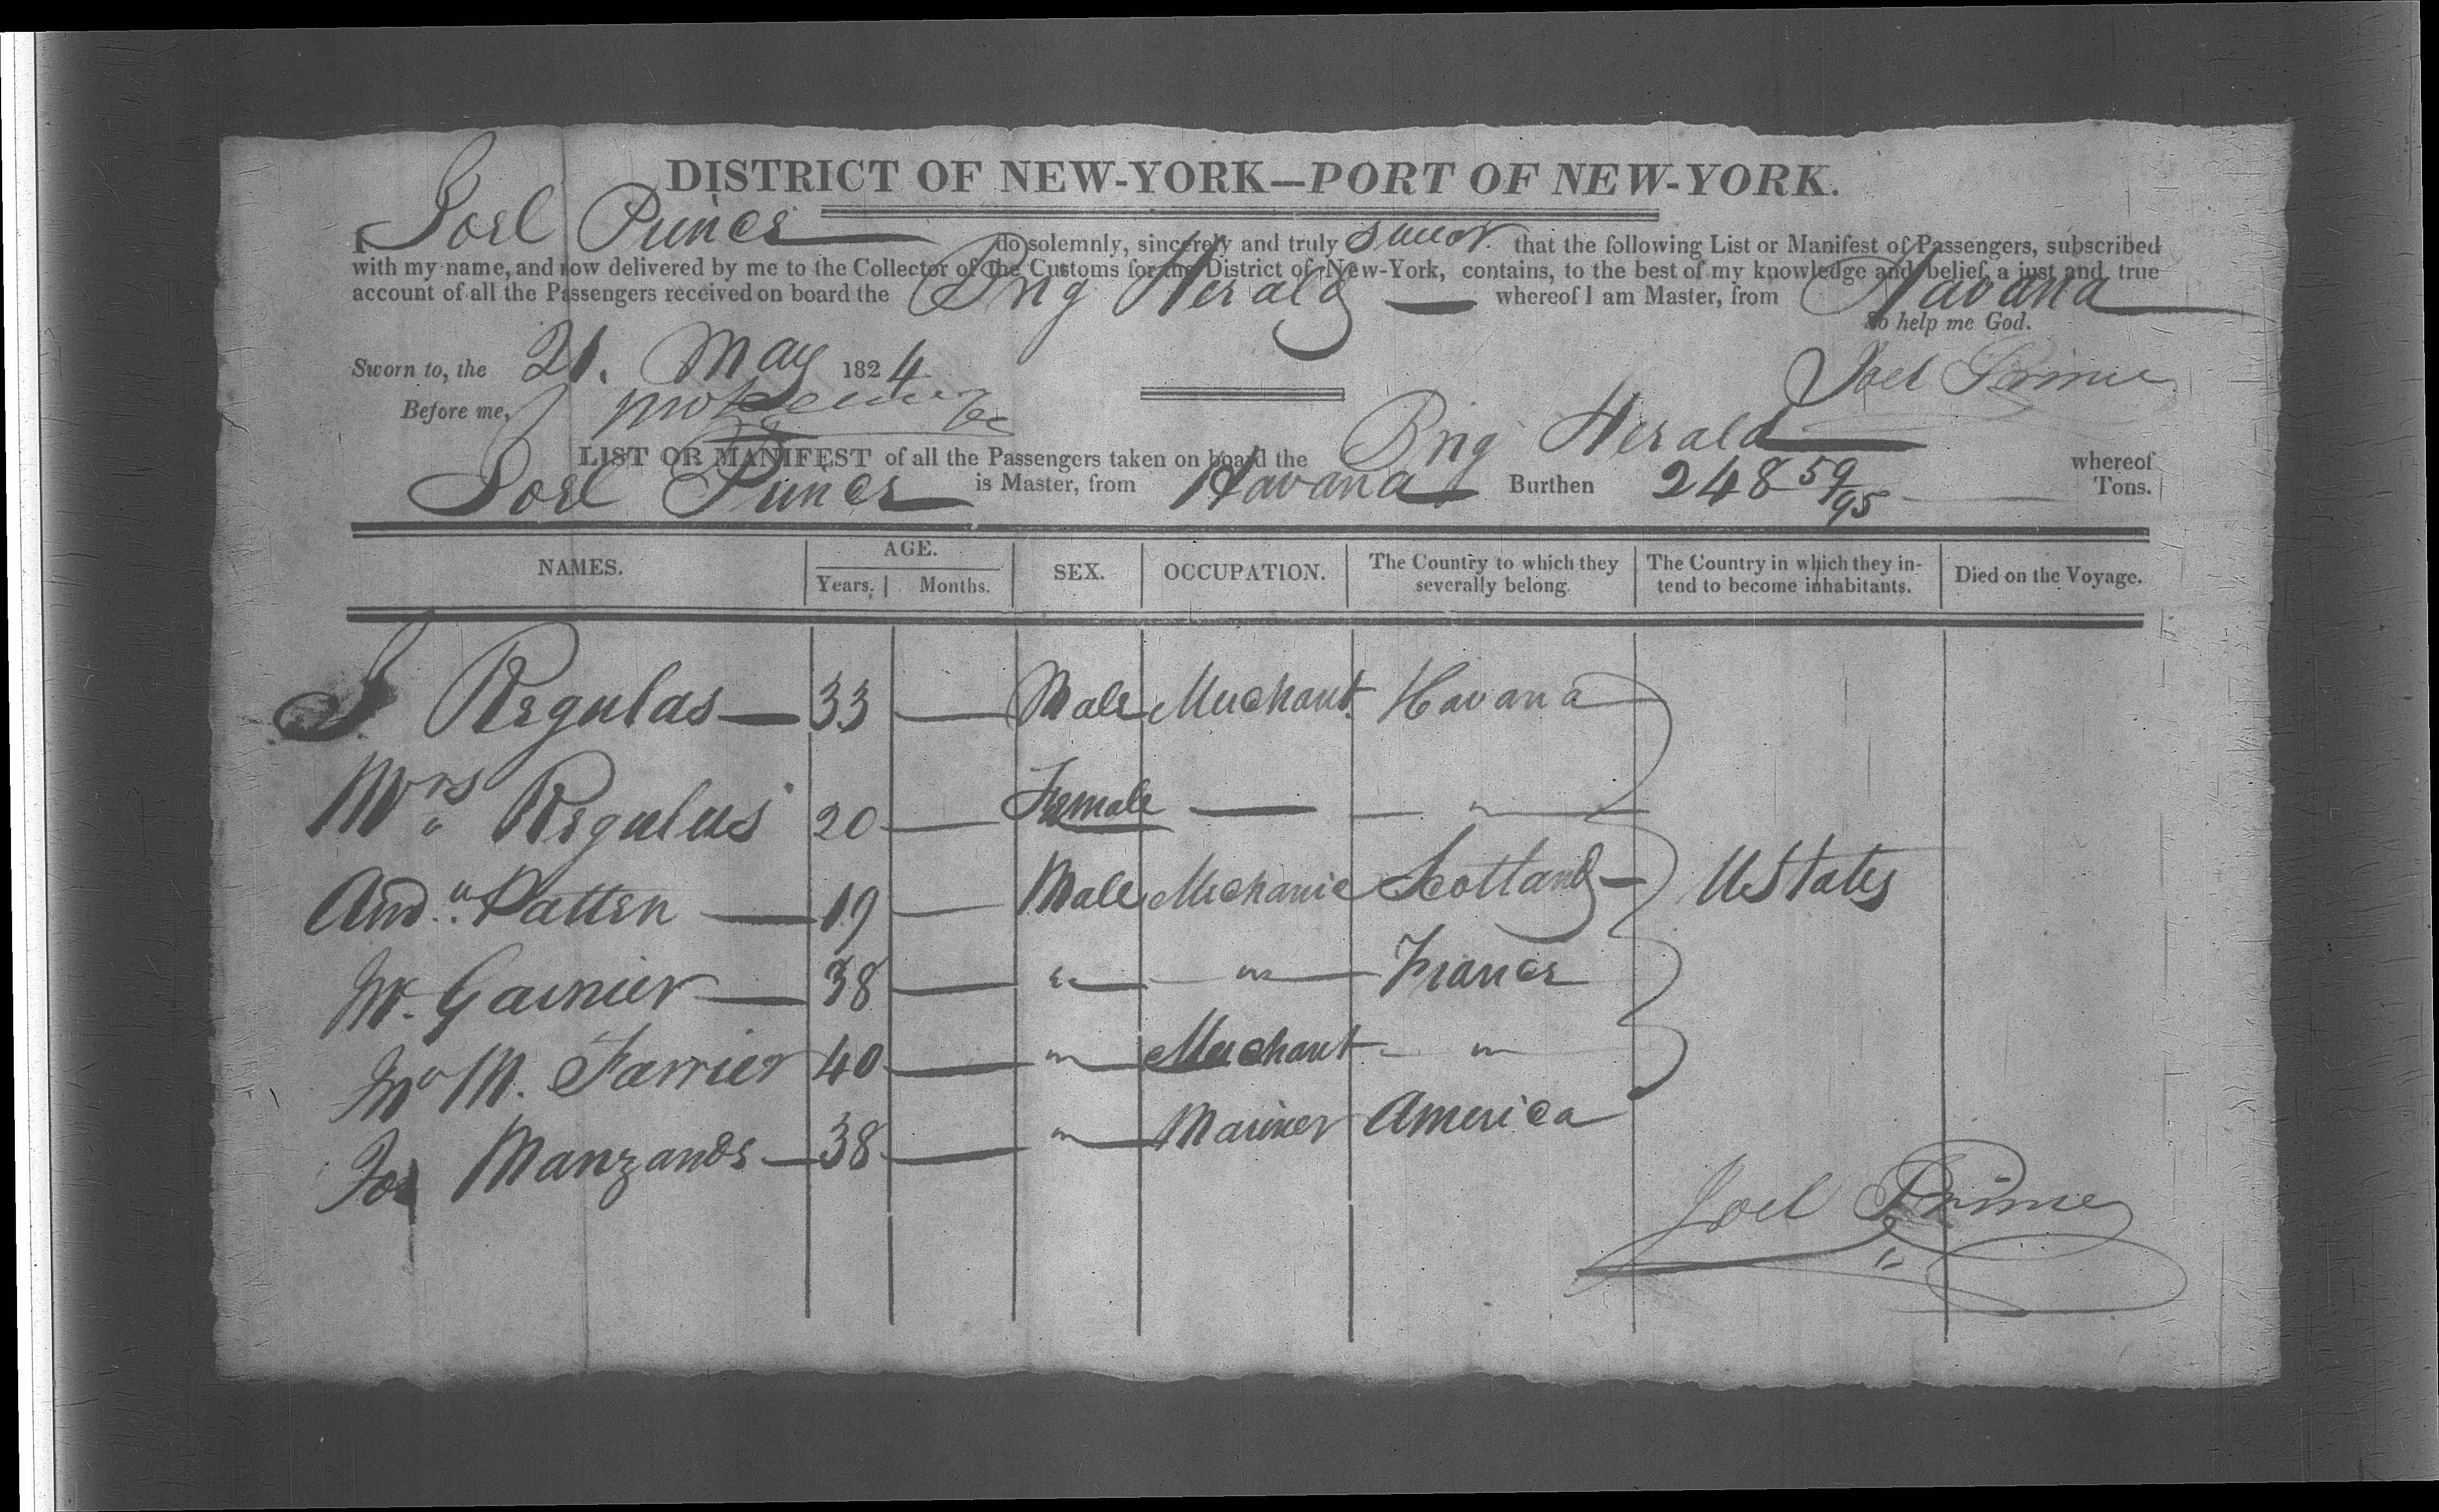 DISTRICT OF NEW-YORK—PORT OF NEW-YORK.
I Joel Prince do solemnly, sincerely and truly swear that the following List or Manifest of Passengers, subscribed
with my name, and now delivered by me to the Collector of the Customs for the District of New-York, contains, to the best of my knowledge and belief, a just and true
account of all the Passengers received on board the Brig Herald — whereof I am Master, from Havana
So help me God.
Sworn to, the 21. May 1824 Joel Prime
Before me,
LIST OR MANIFEST of all the Passengers taken on board the Brig Herald whereof
Joel Prince is Master, from Havana Burthen 248 59/95 Tons.
NAMES. AGE. Years. Months. SEX. OCCUPATION. The Country to which they severally belong. The Country in which they intend to become inhabitants. Died on the Voyage.
J Regulas — 33 — Male Merchant Havana
Mrs Regulus 20 — Female — — " —
Andw Patten — 19 — Male Mechanic Scotland — UStates
Mr. Garnier — 38 — " — " — France
M. Farrier 40 — " — Merchant — "
Jos Manzands — 38 — " — Mariner America
Joel Prime